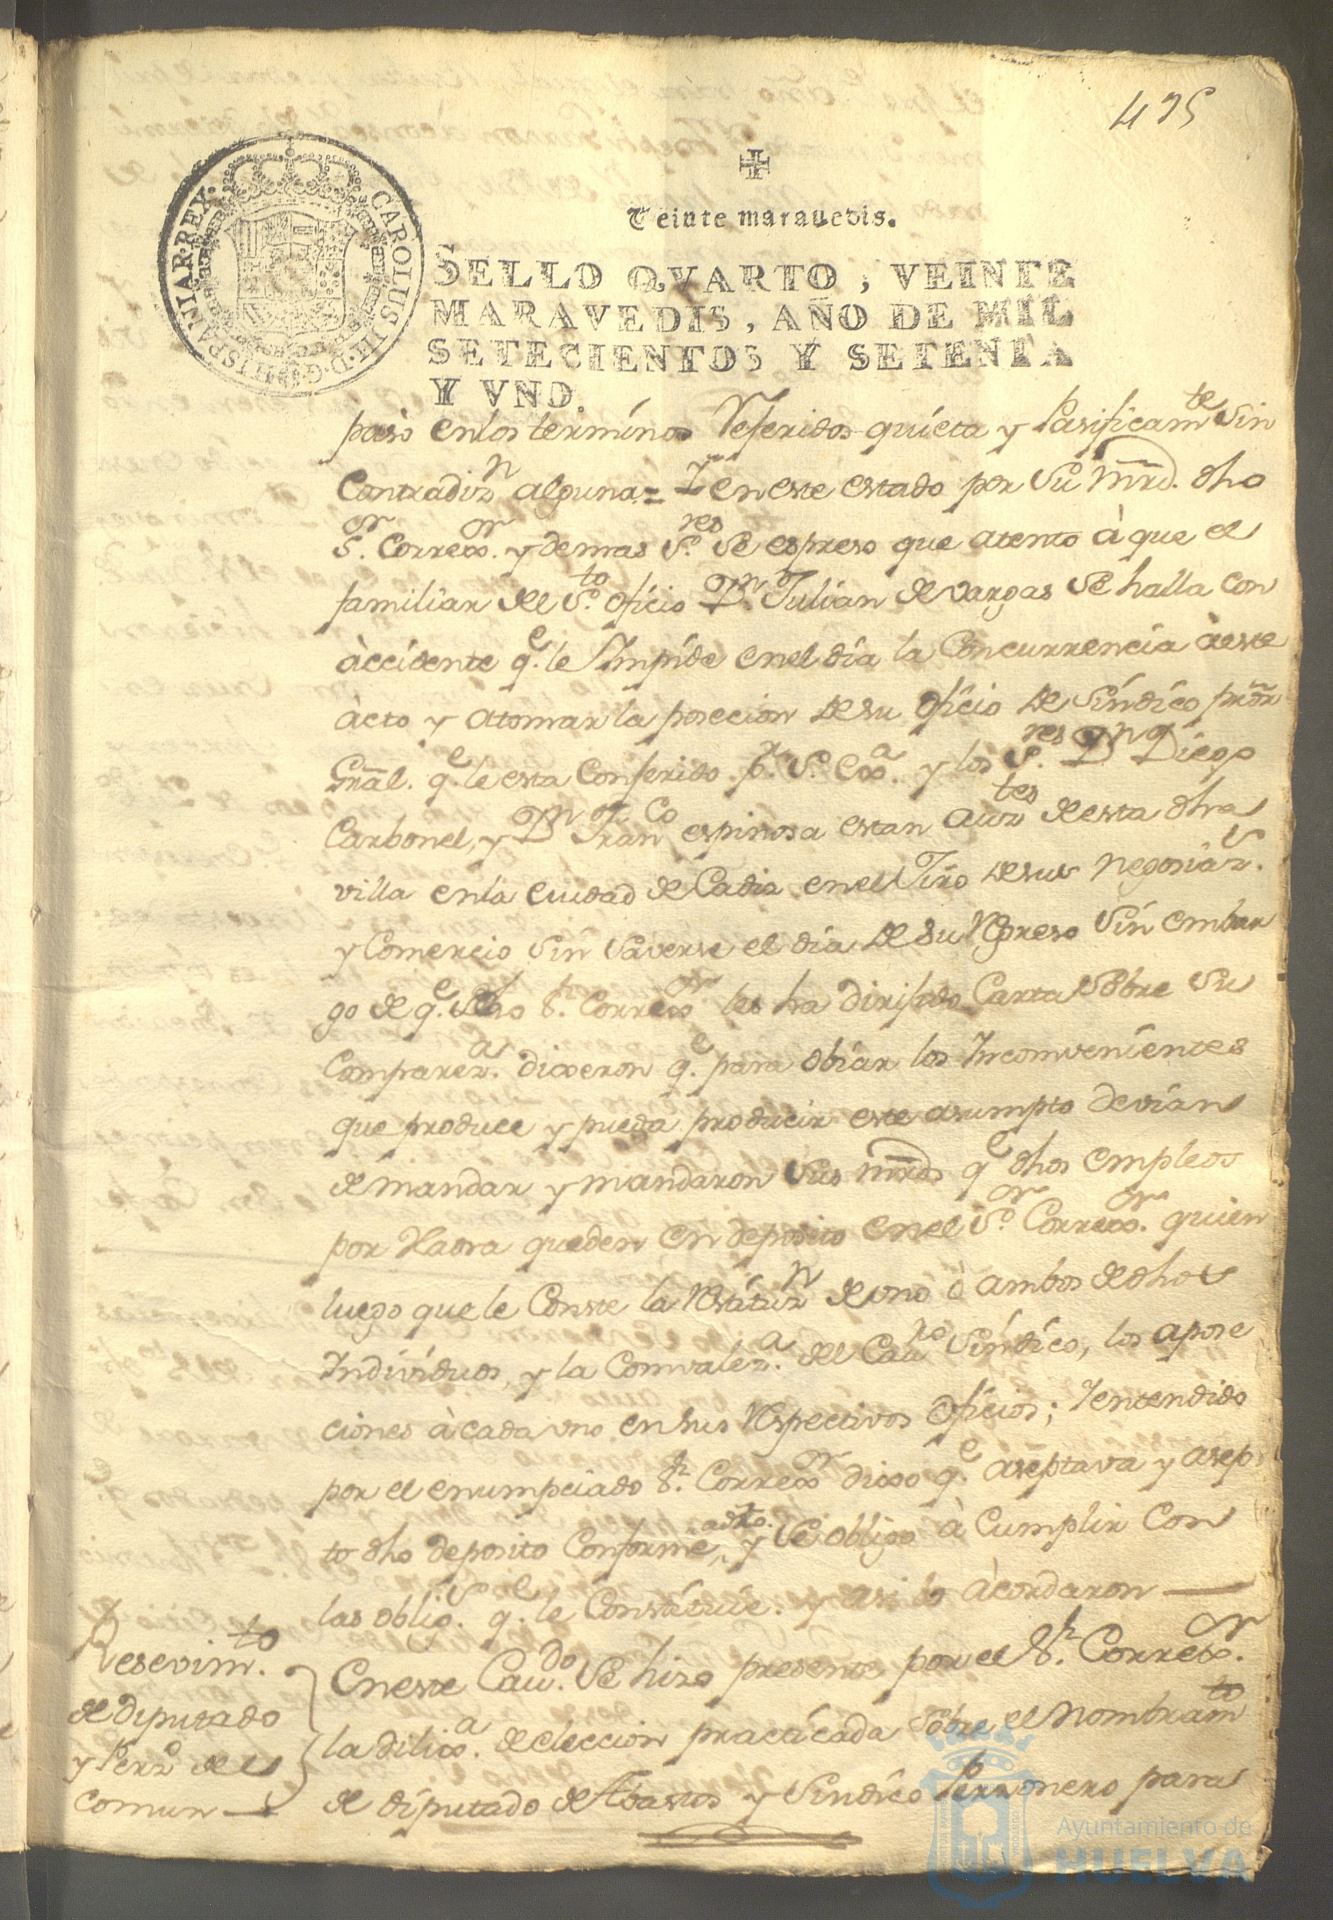 475
Veinte marauedis.
CAROLUS III. D. G. HISPANIAR. REX.
SELLO QVARTO, VEINTE
MARAVEDIS, AÑO DE MIL
SETECIENTOS Y SETENTA
Y VNO.
paso enlos terminos Referidos quieta y Pasificamte Sin
Contradizn alguna = Y en este estado por Su Mrd. dho
Sor. Correxor. y demas Sres. Se espreso que atento à que el
familiar del Sto. Oficio Dn. Julian de Vargas Se halla con
àccidente qe. le Impide enel dia la Concurrencia àeste
àcto y atomar la posecion de su oficio de Sindico pror
Gnal. qe. le esta Conferido pr. S. Exa. y los Sres. Dn Diego
Carbonel, y Dn Franco espinosa estan aucztes de esta dha
villa enla Ciudad de Cadiz enel Jiro de sus negosiazs.
y Comercio Sin Saverse el dia de su Regreso Sin embar
go de qe. dho Sr. Correxor les ha dirijido Carta Sobre Su
Compareza. dixeron qe. para obiar los Incomvenientes
que produce y pueda producir este asumpto devian
de mandar y mandaron Sus mrds qe dhos empleos
por Haora queden en deposito enel Sor. Correxor. quien
luego que le Conste la Restituzn de uno ò ambos de dhos
Individuos, y la Comvaleza. del Cauo Sindico, los apose
ciones à cada uno en sus Respectivos Oficios; Yentendido
por el enumpciado Sr. Correxor dixo qe. aseptava y asep
to dho deposito Conforme adro. y Se obligo à Cumplir Con
las obligs. qe. le Constituie. y asi lo àcordaron
Resevimto.
de diputado
y Perso del
comun
Eneste Caudo. Se hizo presente por el Sr. Correxor.
la dilixa. de eleccion practicada Sobre el Nombramto
de diputado de Abastos y Sindico Personero para
Ayuntamiento de
HUELVA